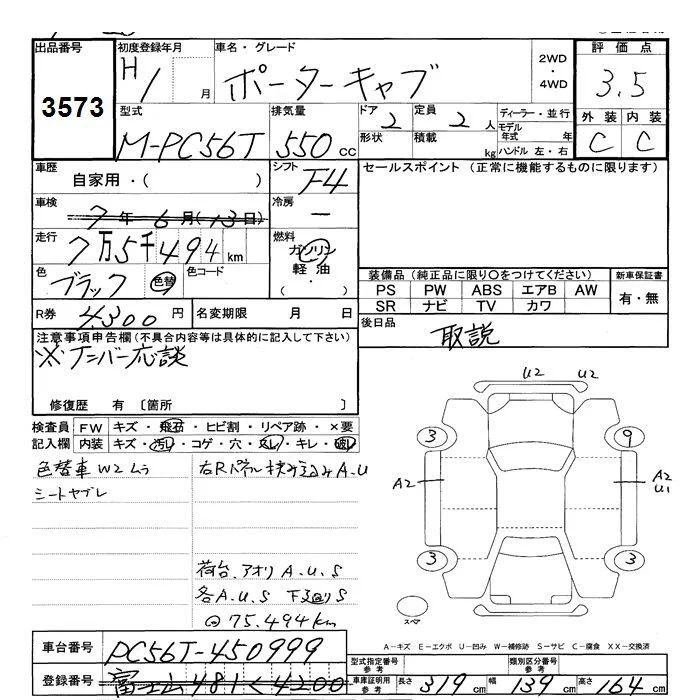 出品番号
3573
初度登録年月
H1 月
車名・グレード
ポーターキャブ
2WD
・
4WD
評価点
3.5
外装 内装
C C
型式
M-PC56T
排気量
550 cc
ドア 2
形状
定員 2 人
積載 kg
ディーラー・並行
モデル年式 年
ハンドル 左・右
車歴
自家用・( )
シフト
F4
セールスポイント (正常に機能するものに限ります)
車検
7年6月(13日)
冷房
ー
走行
7万5千494km
燃料
ガソリン
軽油
( ・ )
色
ブラック 色替
色コード
装備品 (純正品に限り○をつけてください)
PS PW ABS エアB AW
SR ナビ TV カワ
新車保証書
有・無
R券 4300 円
名変期限 月 日
後日品
取説
注意事項申告欄 (不具合内容等は具体的に記入して下さい)
※ナンバー応談
修復歴 有 〔箇所 〕
検査員記入欄
FW キズ・飛石・ヒビ割・リペア跡・×要
内装 キズ・汚レ・コゲ・穴・スレ・キレ・破レ
色替車 W2ムラ
シートヤブレ
右Rパネル挟み込みA.U
荷台.アオリ A.U.S
各A.U.S 下廻りS
◎75.494km
U2 U2
3 9
A2 A2
U1
3 3
スペア
A-キズ E-エクボ U-凹み W-補修跡 S-サビ C-腐食 XX-交換済
車台番号
PC56T-450999
登録番号
富士山 481 く 4200
型式指定番号
参考
類別区分番号
参考
車庫証明用
参考
長さ 319 cm 幅 139 cm 高さ 164 cm